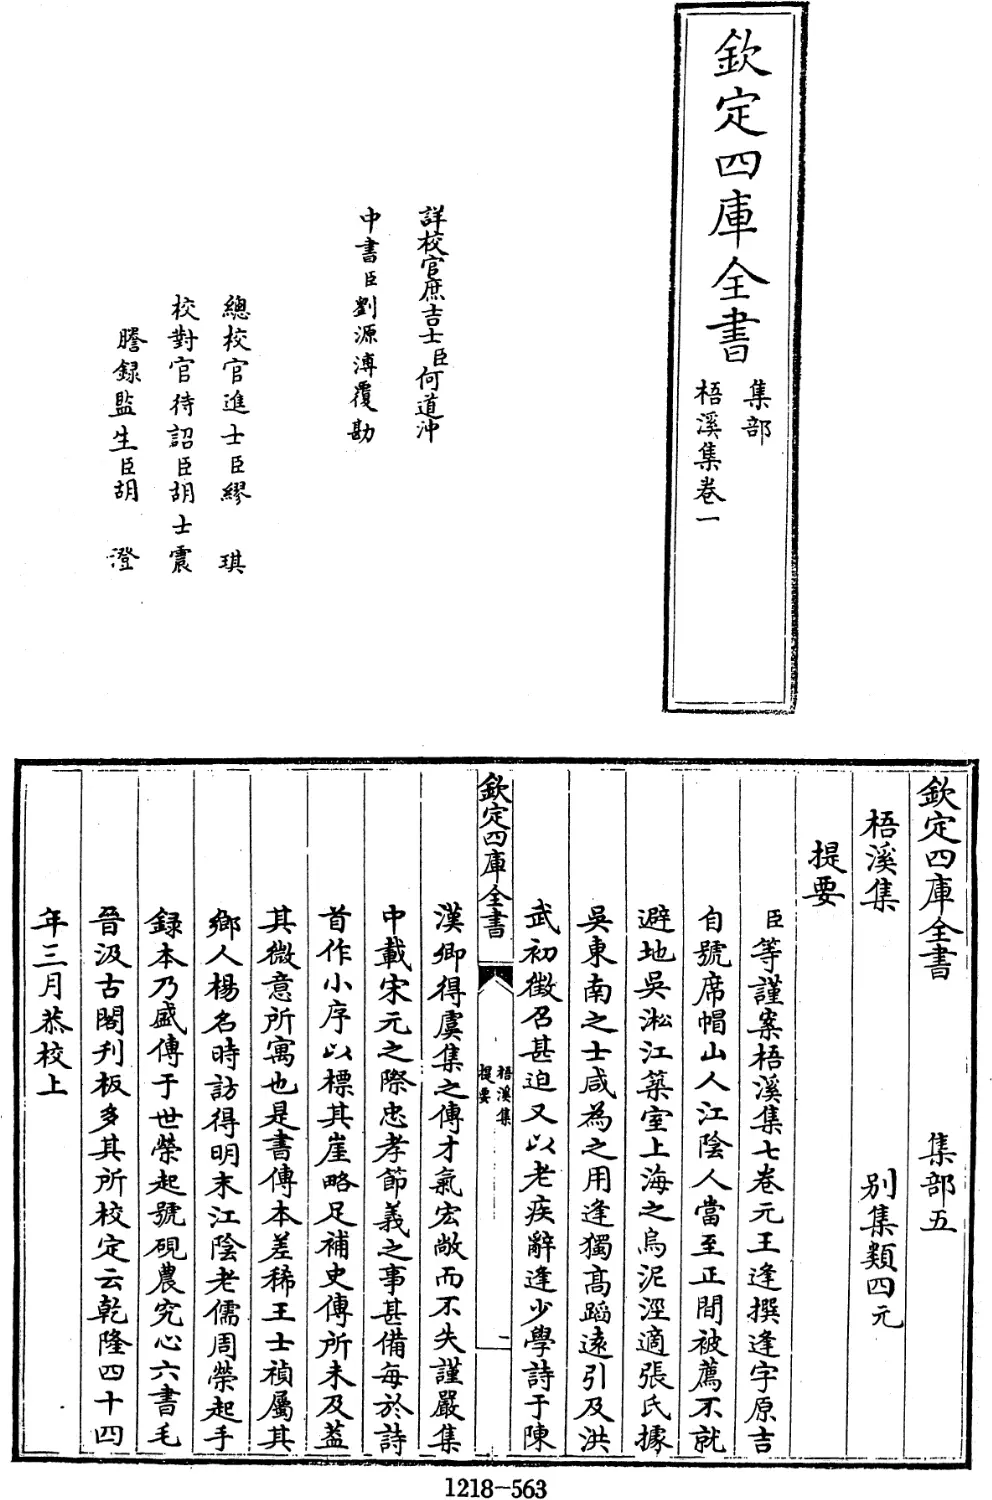 欽定四庫全書
集部
梧溪集卷一
詳校官庶吉士臣何道沖
中書臣劉源溥覆勘
總校官進士臣繆琪
校對官待詔臣胡士震
謄録監生臣胡澄
欽定四庫全書 集部五
梧溪集 别集類四元
提要
臣等謹案梧溪集七卷元王逢撰逢字原吉
自號席帽山人江陰人當至正間被薦不就
避地吳淞江築室上海之烏泥涇適張氏據
吳東南之士咸為之用逢獨髙蹈遠引及洪
武初徵召甚迫又以老疾辭逢少學詩于陳
欽定四庫全書
梧溪集
提要
一
漢卿得虞集之傳才氣宏敞而不失謹嚴集
中載宋元之際忠孝節義之事甚備每於詩
首作小序以標其崖略足補史傳所未及葢
其微意所寓也是書傳本差稀王士禎屬其
鄉人楊名時訪得明末江陰老儒周榮起手
録本乃盛傳于世榮起號硯農究心六書毛
晉汲古閣刋板多其所校定云乾隆四十四
年三月恭校上
1218-563